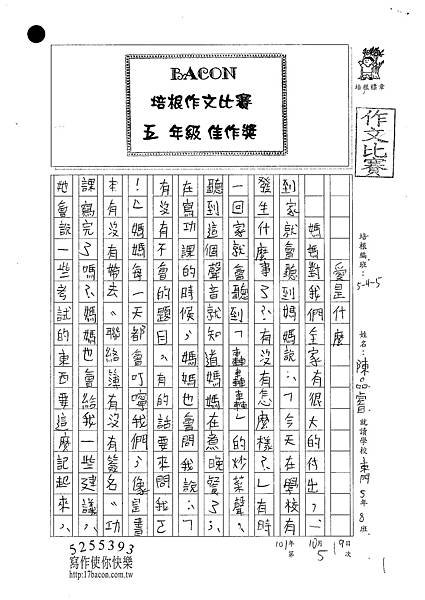 BACON
培根作文比賽
五 年級 佳作獎
培根標章
作文比賽
培根編班：5-4-5
姓名：陳品睿
就讀學校 東門 5年8班
愛是什麼
媽媽對我們全家有很大的付出，一
到家就會聽到媽媽說：「今天在學校有
發生什麼事了？有沒有怎麼樣？」有時
一回家就會聽到「轟轟轟」的炒菜聲，
聽到這個聲音就知道媽媽在煮晚餐了。
在寫功課的時候，媽媽也會問我說：「
有沒有不會的題目，有的話要來問我
！」媽媽每一天都會叮嚀我們，像是書
本有沒有帶去，聯絡簿有沒有簽名，功
課寫完了嗎？媽媽也會給我一些建議，
她會說一些考試的東西要這麼記起來，
5255393
寫作使你快樂
http://17bacon.com.tw
101年10月19日
第5次
1